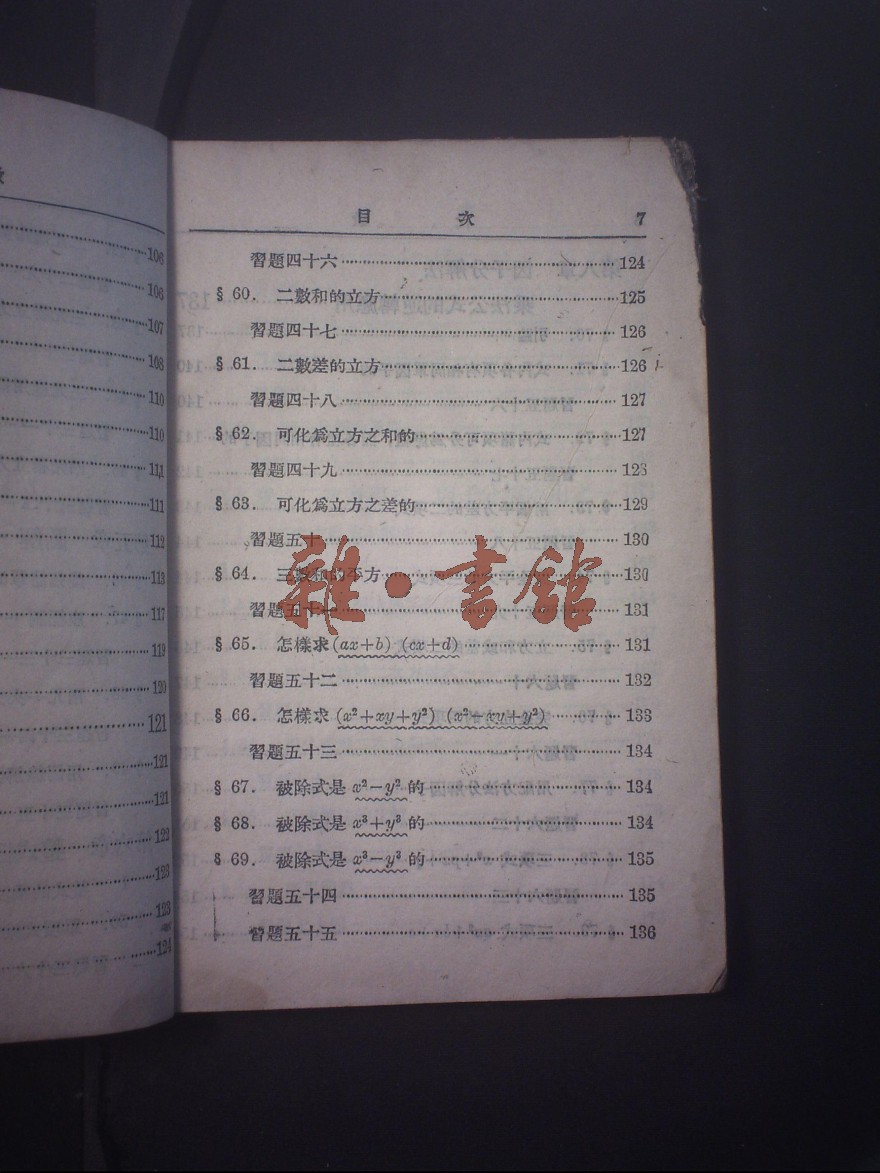 106
106
107
108
110
110
111
111
112
113
117
119
120
121
121
121
122
123
123
124
目 次 7
習題四十六 124
§ 60. 二數和的立方 125
習題四十七 126
§ 61. 二數差的立方 126
習題四十八 127
§ 62. 可化爲立方之和的 127
習題四十九 128
§ 63. 可化爲立方之差的 129
習題五十 130
§ 64. 三數和的平方 130
習題五十一 131
§ 65. 怎樣求(ax+b) (cx+d) 131
習題五十二 132
§ 66. 怎樣求 (x²+xy+y²) (x²−xy+y²) 133
習題五十三 134
§ 67. 被除式是 x²−y² 的 134
§ 68. 被除式是 x³+y³ 的 134
§ 69. 被除式是 x³−y³ 的 135
習題五十四 135
習題五十五 136
雜·書館